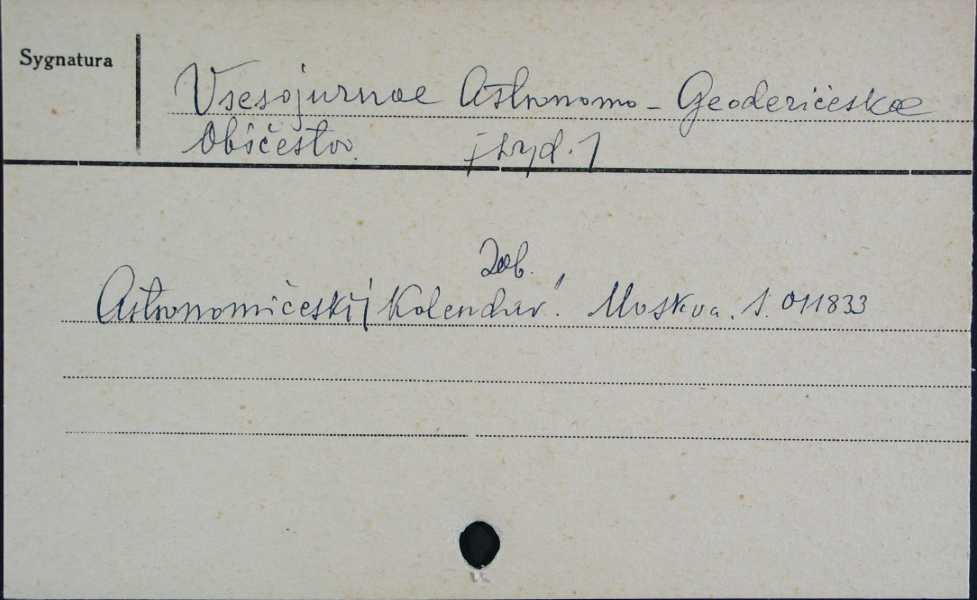 Sygnatura
Vsesojuznoe Astronomo-Geodezičeskoe
Obščestvo. [wyd.]
Zob.
Astronomičeskij Kalendar'. Moskva. S. 011833